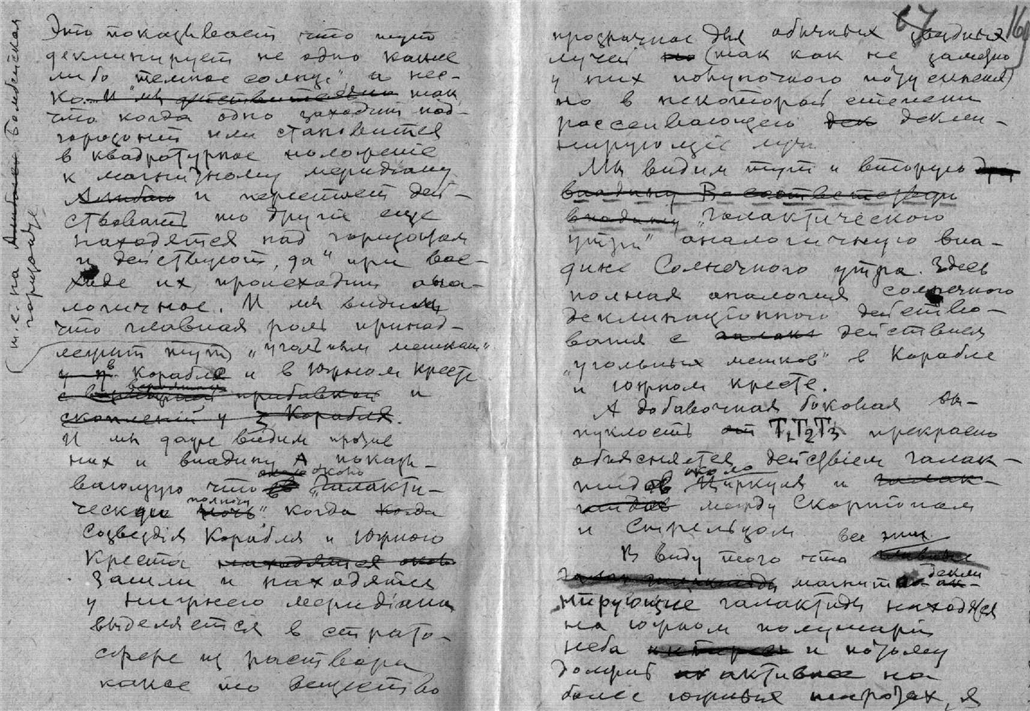 Это показывает что тут
деклинирует не одно какое
либо "темное солнце" а нес-
ко так
что когда одно заходит под
горизонт или становится
в квадратурное положение
к магнитному меридиану
и перестает дей-
ствовать то другие еще
находятся над горизонтом
и действуют, да и при вос-
ходе их происходит ана-
логичное. И мы видим
что главная роль принад-
лежит тут "угольным мешкам"
в Корабле и в Южном Кресте
и
скоплений у Корабля.
И мы даже видим против
них и впадину А показы-
вающую что около "Галакти-
ческой полночи" когда
созвездия Корабля и Южного
Креста
зашли и находятся
у нижнего меридиана
выделяется в страто-
сфере из раствора
какое то вещество
т.е. на
горизонте
Бомбейская
67 16
прозрачное для обычных видных
лучей (так как не заметно
у них поглощения)
но в некоторой степени
рассеивающего деклини-
нирующие лучи.
Мы видим тут и вторую
впадину
впадину "галактического
утра" аналогичную впа-
дине Солнечного утра. Здесь
полная аналогия солнечного
деклинационного действо-
вания с действием
"угольных мешков" в Корабле
и Южном кресте.
А добавочная боковая вы-
пуклость T₁T₂T₃ прекрасно
объясняется действием галак-
тидов около Циркуля и
между Скорпионом
и Стрельцом
В виду того что все эти
магнито декли-
нирующие галактиды находятся
на южном полушарии
неба и потому
должны активнее на
более южных широтах, я